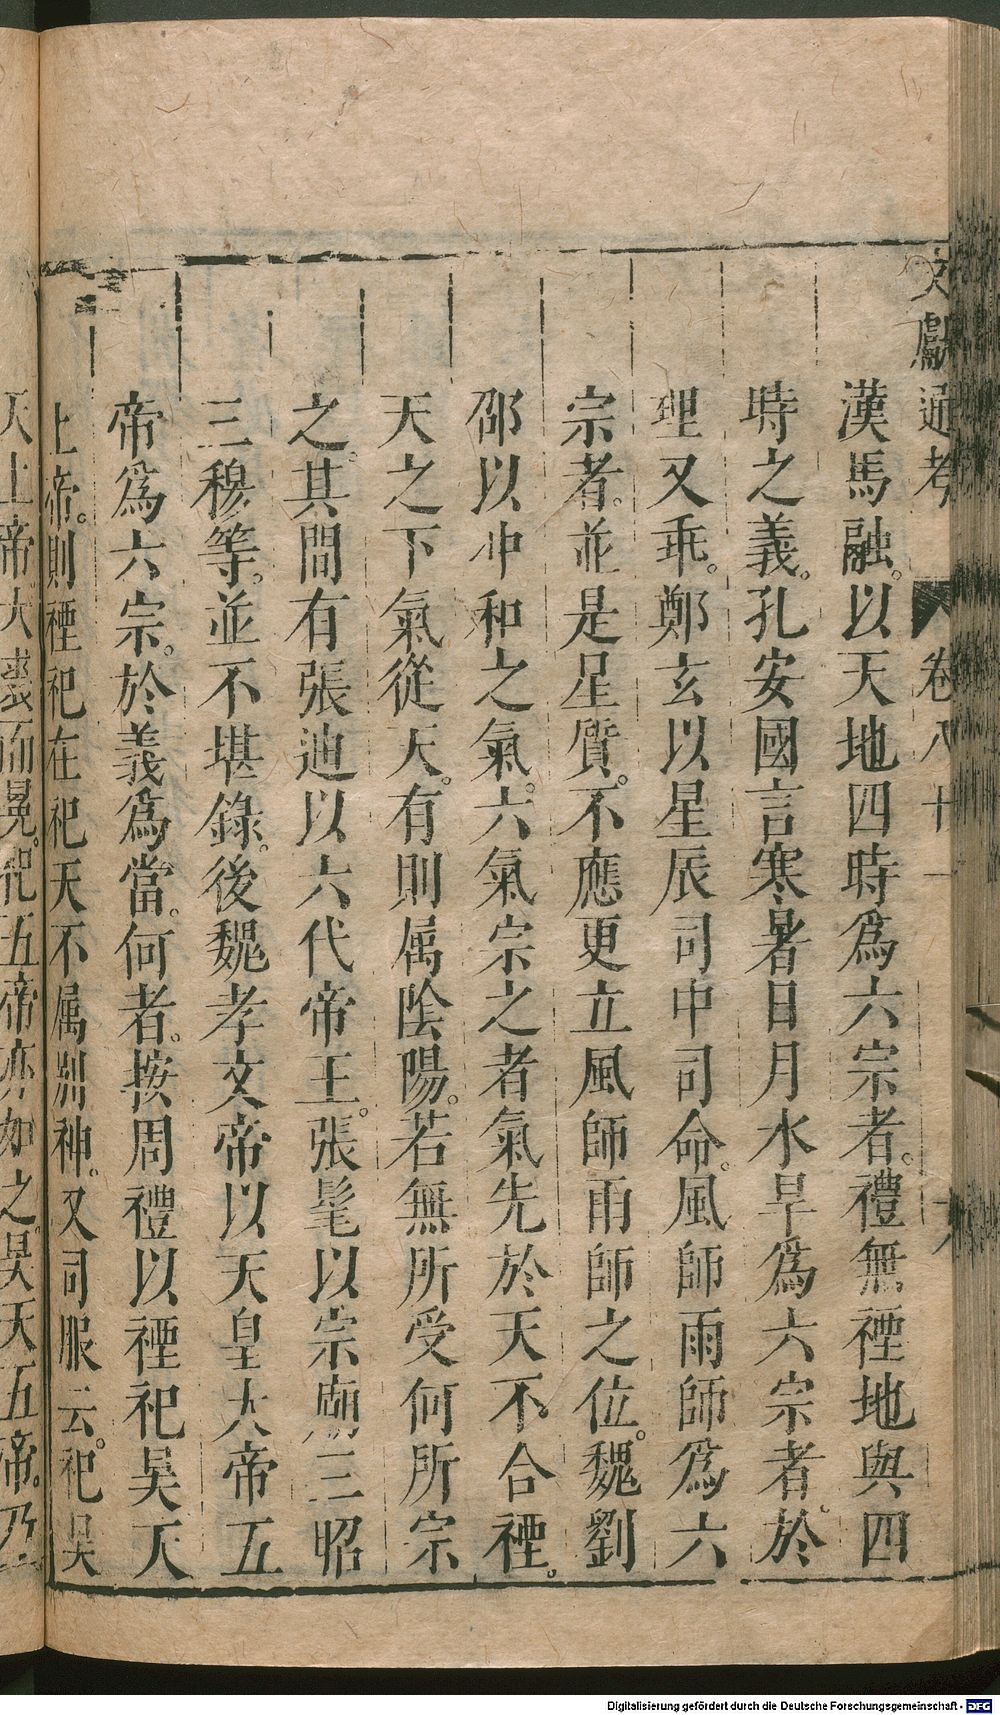 文獻通考 卷八十一 十六
漢馬融。以天地四時爲六宗者。禮無禋地與四
時之義。孔安國言寒暑日月水旱爲六宗者。於
理又乖。鄭玄以星辰司中司命。風師雨師爲六
宗者。並是星質。不應更立風師雨師之位。魏劉
邵以冲和之氣。六氣宗之者氣先於天不合禋。
天之下氣從天。有則属陰陽。若無所受何所宗
之。其間有張迪以六代帝王。張髦以宗廟三昭
三穆等。並不堪錄。後魏孝文帝以天皇大帝五
帝爲六宗。於義爲當。何者。按周禮以禋祀昊天
上帝。則禋祀在祀天不属別神。又司服云。祀昊
天上帝。大裘而冕。祀五帝亦如之。昊天五帝。乃
Digitalisierung gefördert durch die Deutsche Forschungsgemeinschaft - DFG